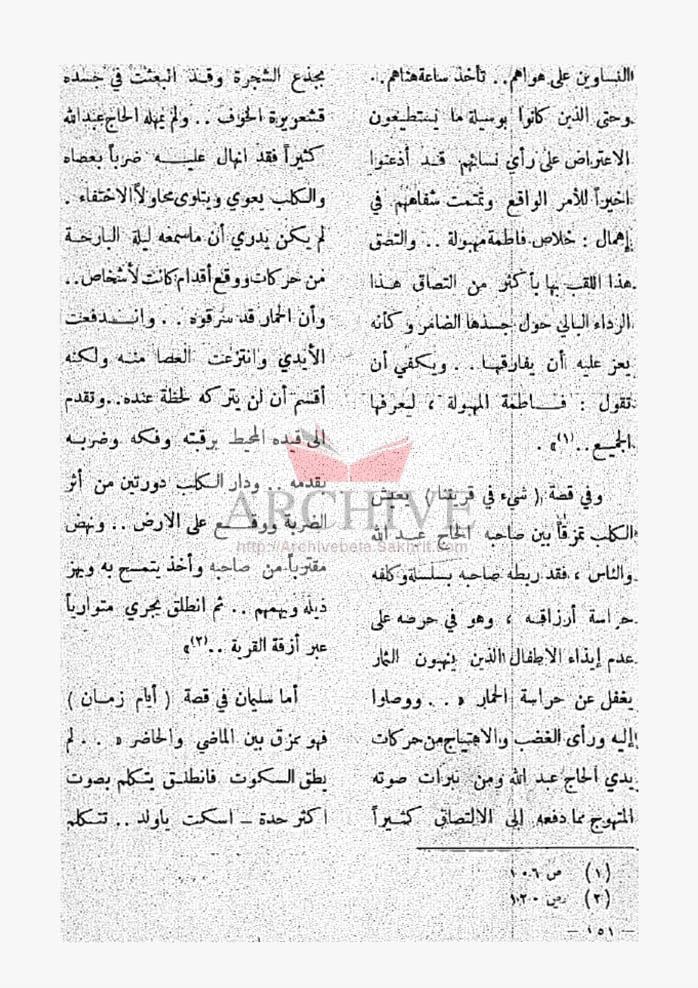 النساوين على هواهم .. تأخذ ساعة هناهم ..
وحتى الذين كانوا بوسيلة ما يستطيعون
الاعتراض على رأي نسائهم قد أذعنوا
اخيراً للأمر الواقع وتمتمت شفاههم في
إهمال : خلاص فاطمة مهبولة .. والتصق
هذا اللقب بها بأكثر من التصاق هذا
الرداء البالي حول جسدها الضامر وكأنه
يعز عليه أن يفارقها .. ويكفي أن
تقول : فاطمة المهبولة ، ليعرفها
الجميع .. (١)» .
وفي قصة ( شيء في قريتنا ) يعيش
الكلب تمزقاً بين صاحبه الحاج عبد الله
والناس ، فقد ربطه صاحبه بسلسلة وكلفه
حراسة أرزاقه ، وهو في حرصه على
عدم إيذاء الاطفال الذين ينهبون الثمار
يغفل عن حراسة الحمار « .. ووصلوا
إليه ورأى الغضب والاهتياج من حركات
يدي الحاج عبد الله ومن نبرات صوته
المتهوج مما دفعه إلى الالتصاق كثيراً
بجذع الشجرة وقد انبعثت في جسده
قشعريرة الخوف .. ولم يمهله الحاج عبد الله
كثيراً فقد انهال عليه ضرباً بعصاه
والكلب يعوي ويتلوى محاولاً الاختفاء .
لم يكن يدري أن ما سمعه ليلة البارحة
من حركات ووقع أقدام كانت لأشخاص ..
وأن الحمار قد سرقوه .. واندفعت
الأيدي وانتزعت العصا منه ولكنه
أقسم أن لن يتركه لحظة عنده .. وتقدم
الى قيده المحيط برقبته وفكه وضربه
بقدمه .. ودار الكلب دورتين من أثر
الضربة ووقع على الارض .. ونهض
مقترباً من صاحبه وأخذ يتمسح به ويهز
ذيله ويهمهم .. ثم انطلق يجري متوارياً
عبر أزقة القرية .. (٢)»
أما سليمان في قصة ( أيام زمان )
فهو تمزق بين الماضي والحاضر « .. لم
يطق السكوت فانطلق يتكلم بصوت
اكثر حدة – اسكت ياولد .. تتكلم
(١) ص ١٠٦
(٢) ص ١٢٠
– ١٥١ –
ARCHIVE
http://Archivebeta.Sakhrit.com